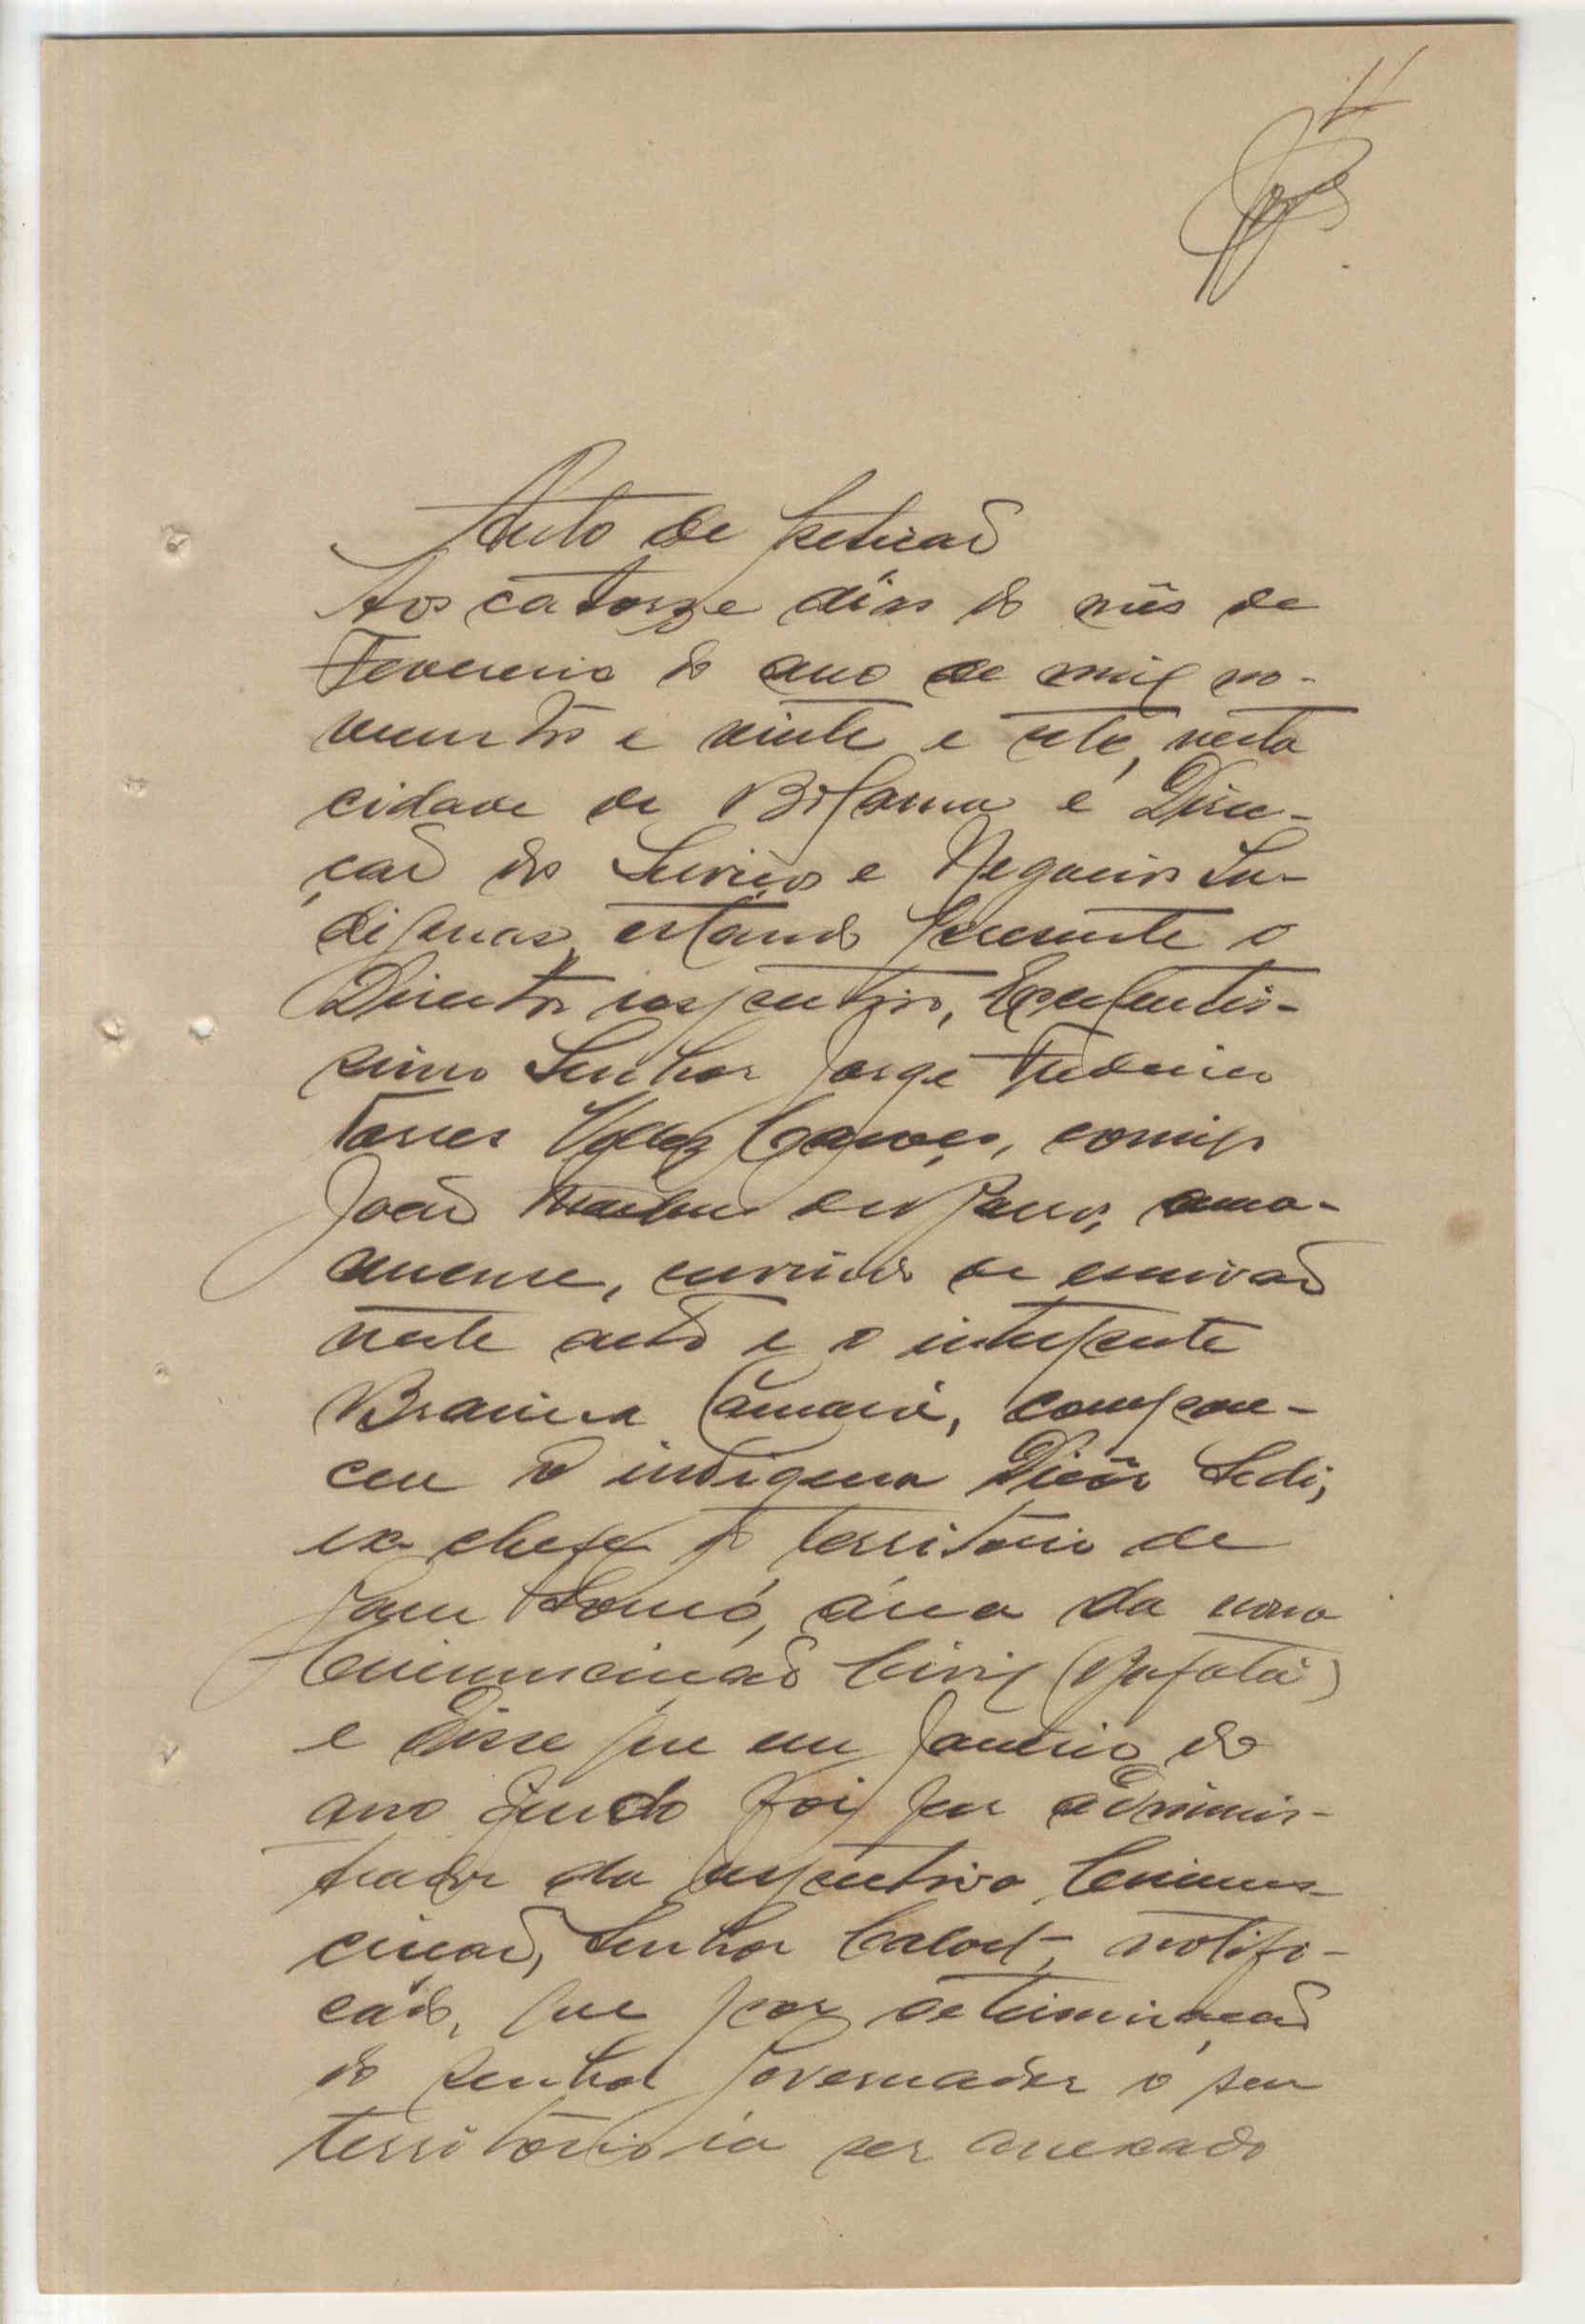 Auto de petição
Aos catorze dias do mês de
Fevereiro do ano de mil no-
vecentos e vinte e sete, nesta
cidade de Bolama e Direc-
ção dos Serviços e Negocios In-
digenas, estando presente o
Director respectivo, Excelentis-
simo Senhor Jorge Frederico
Torres Velez Caroço, comigo
João
nuense, servindo de escrivão
neste auto e o interprete
Braima Câmará, compare-
ceu o indigena Sedi,
ex-chefe do territorio de
área da
Circunscrição Civil (Bafatá)
e disse que em Janeiro do
ano findo foi por adminis-
trador da respectiva Circuns-
crição, Senhor Calvet, notifi-
cado, que por determinação
do senhor Governador o seu
territorio ia ser anexado